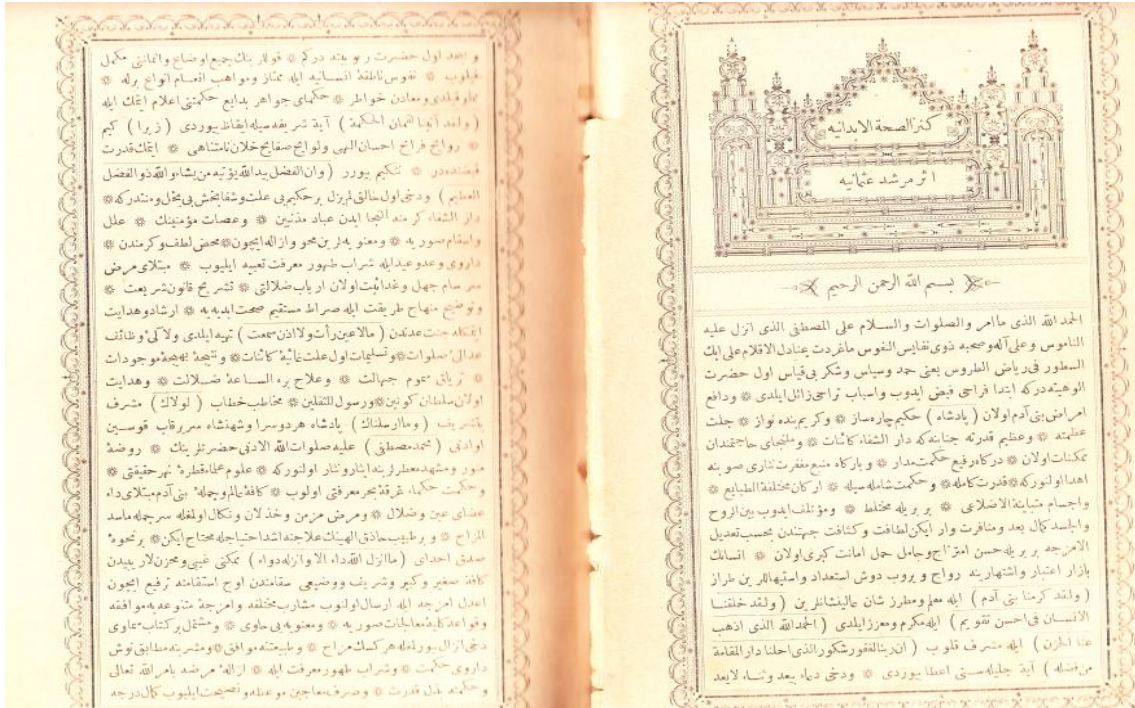 كنز الصحة الابدانيه
اثر مرشد عثمانيه
بسم الله الرحمن الرحيم
الحمد الله الذى ماامر والصلوات والسلام على المصطفى الذى انزل عليه
الناموس وعلى آله وصحبه ذوى نفايس النفوس ماغردت بعنادل الاقلام على ايك
السطور فى رياض الطروس يعنى حمد وسپاس وشكر بى قياس اول حضرت
الوهيته دركه ابتدا فراحى قبض ايدوب واسباب تراحى زائل ايلدى ۞ ودافع
امراض بنى آدم اولان ( پادشاه ) حكيم چاره ساز ۞ وكريم بنده نواز ۞ جلت
عظمته ۞ وعظيم قدرته جنابنه كه دار الشفاء كائنات ۞ وملتجاى حاجتمندان
ممكنات اولان ۞ دركاه رفيع حكمت مدار ۞ وباركاه منبع مغفرت نثارى صوبنه
اهدا اولنوركه ۞ قدرت كامله ۞ وحكمت شامله سيله ۞ اركان مختلفة الطبايع ۞
واجسام متباينة الاضلاعى ۞ بربريله مختلط ۞ ومؤتلف ايدوب بين الروح
والجسد كمال بعد ومنافرت وار ايكن لطافت وكثافت جهتندن بحسب تعديل
الامزجه بربريله حسن امتزاج وحامل حمل امانت كبرى اولان ۞ انسانك
بازار اعتبار واشتهارينه رواج ويروب دوش استعداد واستيهاللرين طراز
( ولقد كرمنا بنى آدم ) ايله معلم ومطرز شان عاليشانلرين ( ولقد خلقنا
الانسان فى احسن تقويم ) ايله مكرم ومعزز ايلدى ( الحمد الله الذى اذهب
عنا الحزن ) ايله مشرف قلوب ( ان ربنا لغفور شكور الذى احلنا دار المقامة
من فضله ) آية جليله سنى اعطا بيوردى ۞ ودخى ديماء بعد وثناء لايعد
و بعد اول حضرت ربوبيته دركم ۞ قوللرينك جميع اوضاع واتمانى مكمل
قيلوب ۞ نفوس ناطقة انسانيه ايله ممتاز ومواهب اقسام انواع برله ۞
مملو قيلدى ومعادن خواطر ۞ حكماى جواهر بدايع حكمتنى اعلام ايتمك ايله
( ولقد آتينا لقمان الحكمة ) آية شريفه سيله ايقاظ بيوردى ( زيرا ) كيم
۞ روايح فرايح احسان الهى ولوايح صفايح خلان نامتناهى ۞ ايتمك قدرت
قبضنده در ۞ تتكيم بيورر ( وان الفضل بيد الله يؤتيه من يشاء والله ذو الفضل
العظيم ) ودخى اول خالق لم يزل بر حكيم بى علت وشفا بخش بى بخل ومنتدركه ۞
دار الشفاء كرمنه التجا ايدن عباد مذنبين ۞ وعصات مؤمنينك ۞ علل
واسقام صوريه ۞ ومعنويه لرين محو وازاله ايچون ۞ محض لطف وكرمندن ۞
داروى وعد وعيد ايله شراب طهور معرفت تعبيه ايليوب ۞ مبتلاى مرض
سرسام جهل وغدائيت اولان ارباب ضلالتى ۞ تشريح قانون شريعت ۞
وتوضيح منهاج طريقت ايله صراط مستقيم صحت ابديه يه ۞ ارشاد وهدايت
ايتمكله جنت عدندن ( مالاعين رأت ولا اذن سمعت ) تهيه ايلدى ولاكئ وظائف
عدالى صلوات ۞ وتسليمات اول علت غائية كائنات ۞ ونتيجة بهيجة موجودات
۞ ترياق سموم جهالت ۞ وعلاج برء الساعة ضلالت ۞ وهدايت
اولان سلطان كونين ۞ ورسول للثقلين ۞ مخاطب خطاب ( لولاك ) مشرف
بتشريف ( وماارسلناك ) پادشاه هردوسرا وشهنشاه سرير قاب قوسين
اوادنى ( محمد مصطفى ) عليه صلوات الله الادنى حضرتلرينك ۞ روضة
منور ومشهد معطر لرينه ايثار ونثار اولنوركه ۞ علوم علماء قطرة نهر حقيقتى ۞
وحكمت حكماء غرقة بحر معرفتى اولوب ۞ كافة عالم وجملة بنى آدم مبتلاى داء
عضاى غبن وضلال ۞ ومرض مزمن وخذلان ونكال اولمغله سرجمله ماسد
المزاح ۞ وبر طبيب حاذق الهينك علاجنه اشد احتياجله محتاج ايكن ۞ بر نحوة
صدق احداى ( ماانزل الله داء الا وانزله دواء ) ممكنى غيبى ومخزن لاريبيدن
كافة صغير وكبير وشريف ووضيعى سقامندن اوج استقامته ترفيع ايچون
اعدل امزجه ايله ارسال اولنوب مشارب مختلفه وامزجة متنوعه يه موافقه
وقواعد كلية معالجات صوريه ۞ ومعنويه يى حاوى ۞ ومشتمل بر كتاب سماوى
دخى انزال بيورلمغله هر كسك مزاج ۞ وطبيعتنه موافق ۞ ومشربنه مطابق نوش
داروى حكمت ۞ وشراب طهور معرفت ايله ۞ ازالة مرضه بامر الله تعالى
وحكمته بذل قدرت ۞ وصرف معاجين موعظه ونصيحت ايليوب كمال درجه